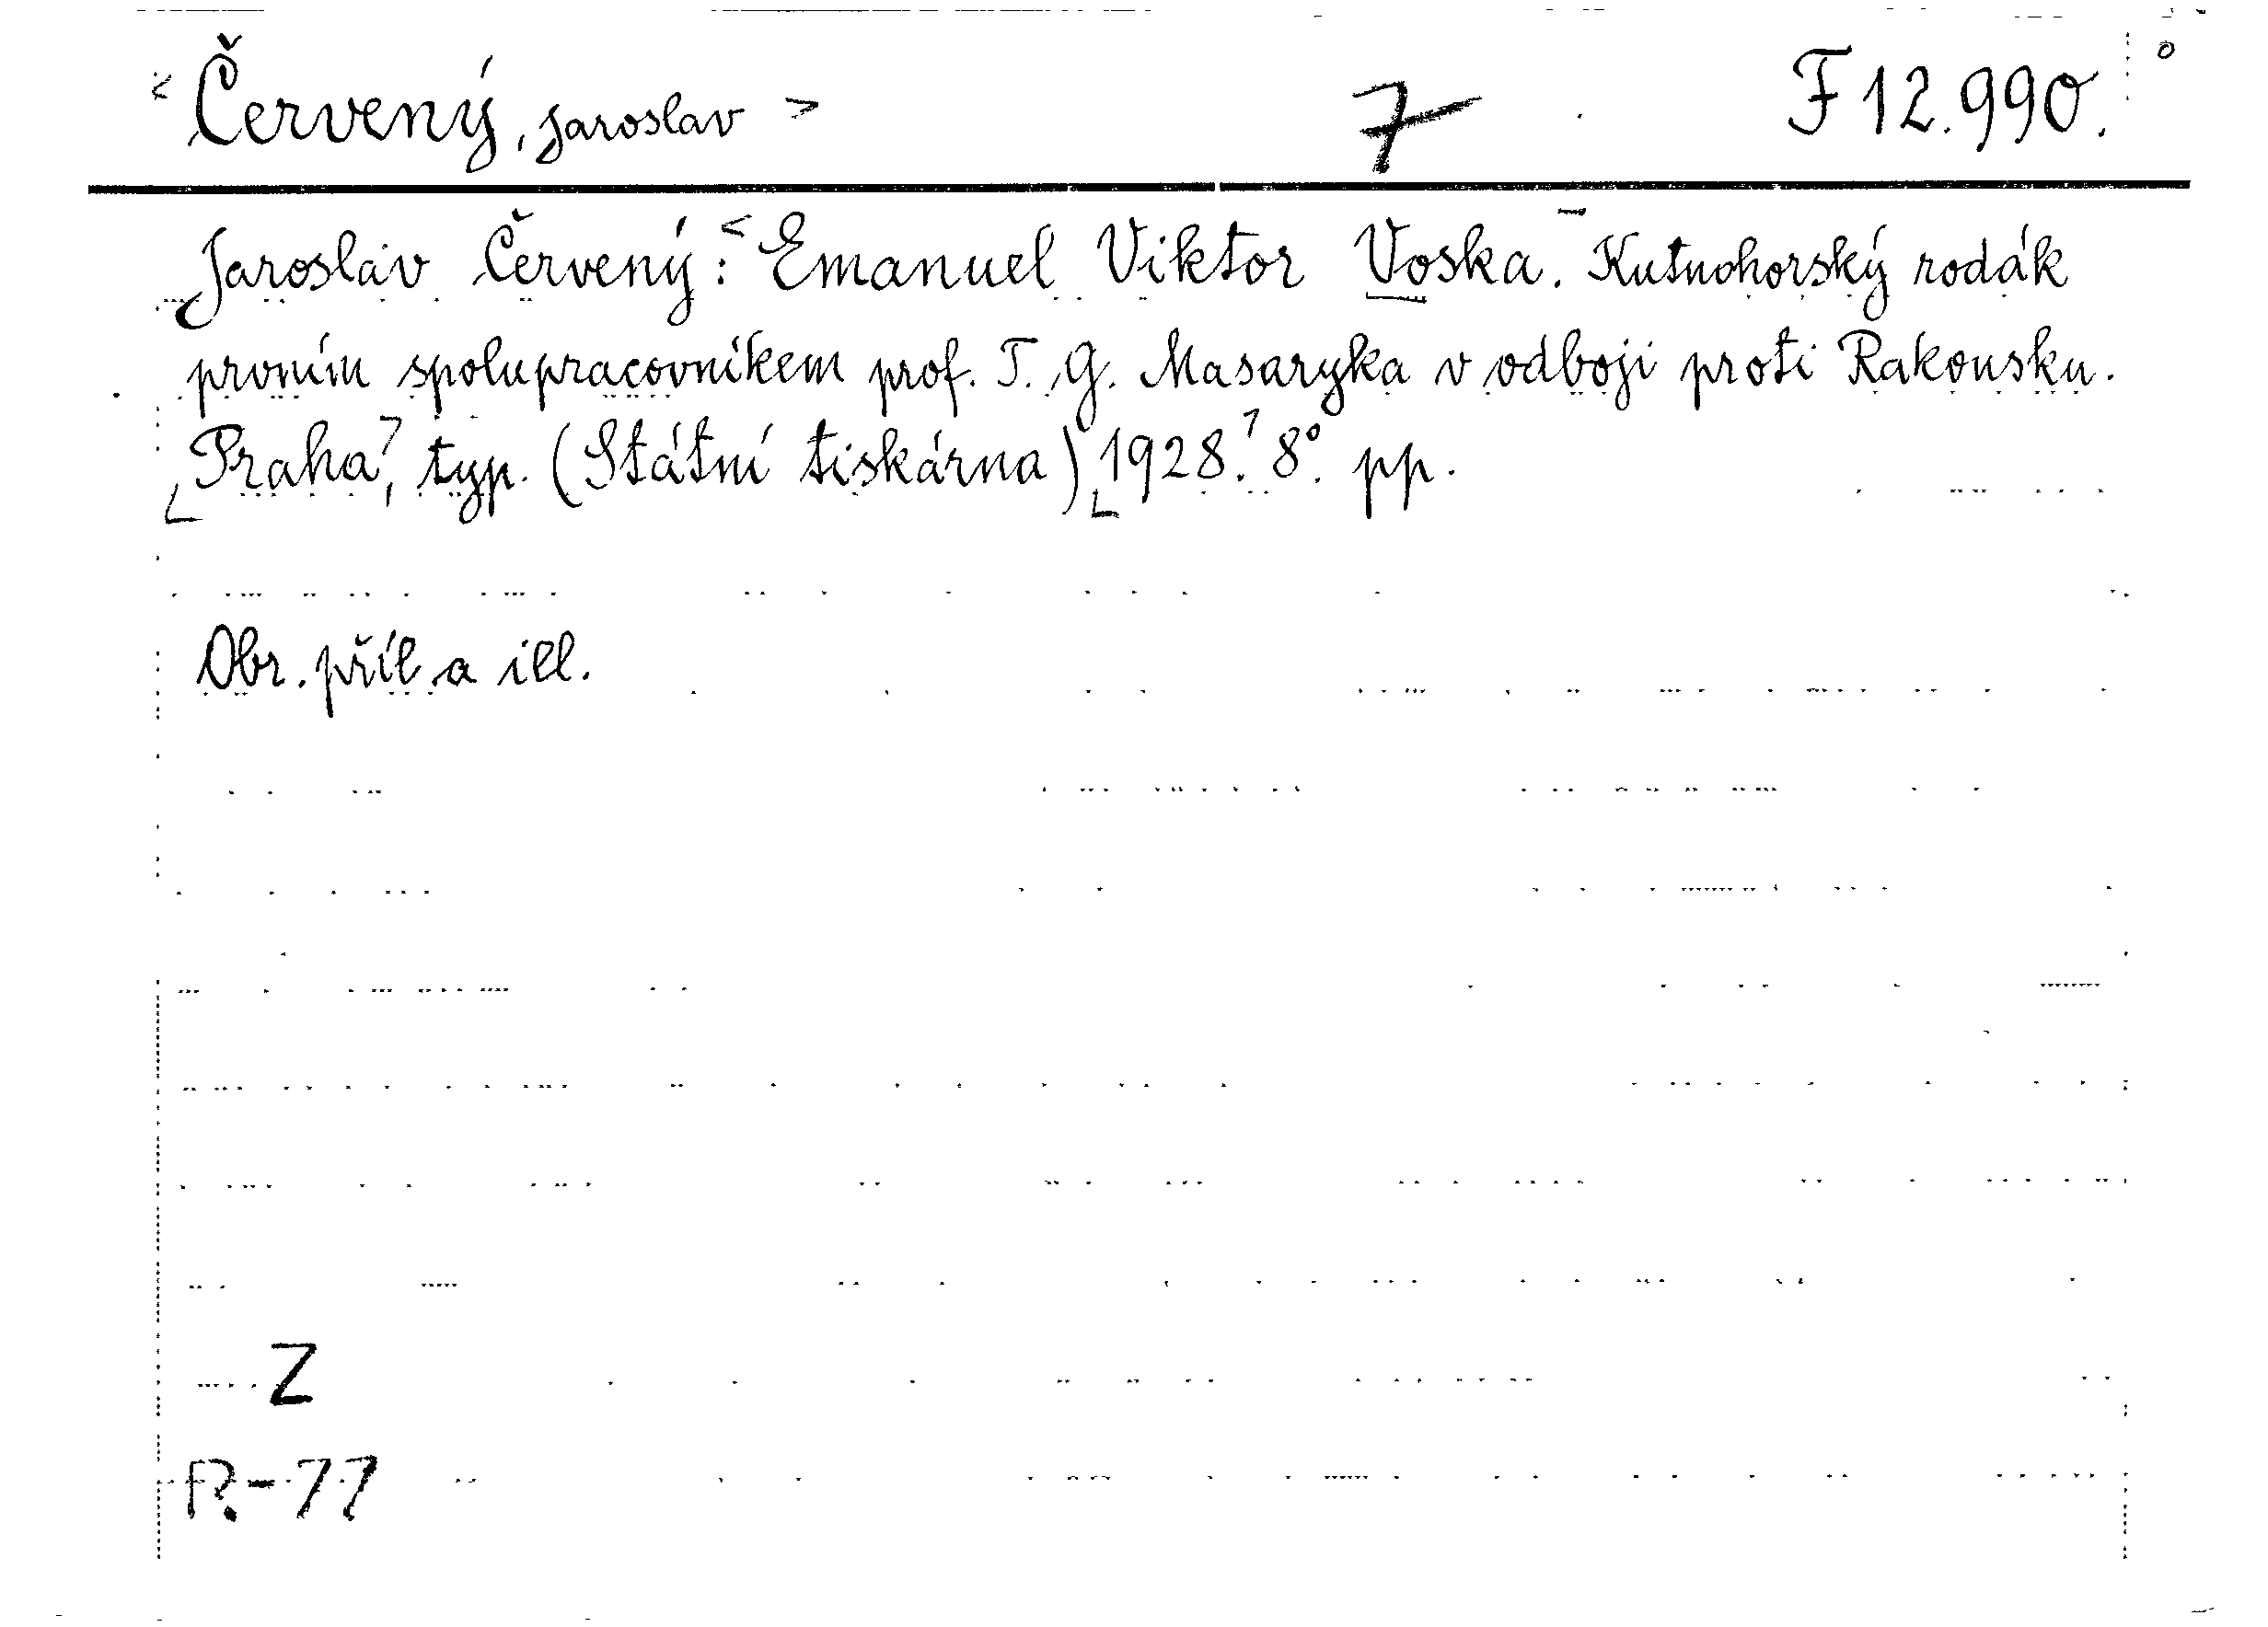 < Červený, Jaroslav > 7 F 12.990.
Jaroslav Červený: < Emanuel Viktor Voska. Kutnohorský rodák
prvním spolupracovníkem prof. T. G. Masaryka v odboji proti Rakousku.
Praha, typ. (Státní tiskárna) 1928. 8°. pp.
Obr. příl. a ill.
Z
R-77